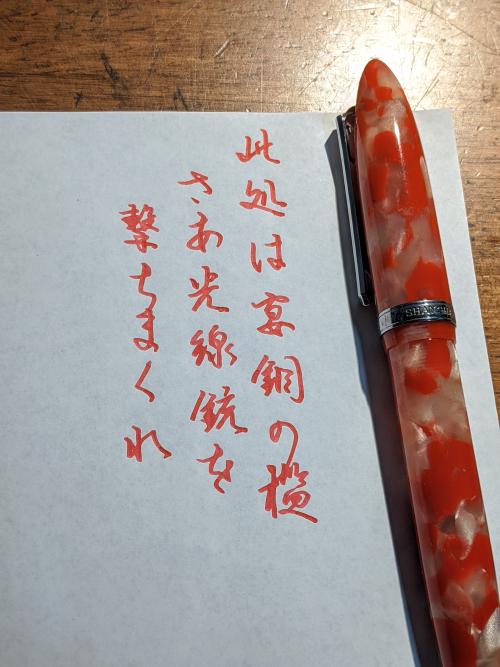 此処は宴銅の檻
さあ光線銃を
撃ちまくれ
SHANGHA